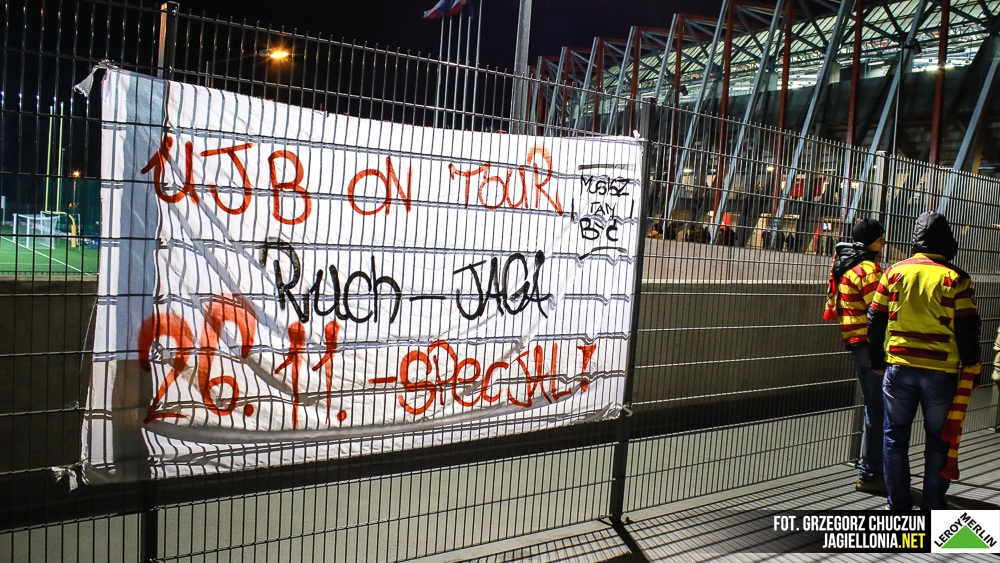 UJB ON TOUR
MUSISZ
TAM
BYĆ
Ruch - JAGA
26.11. - SPECJAL!
FOT. GRZEGORZ CHUCZUN
JAGIELLONIA.NET
LEROY MERLIN